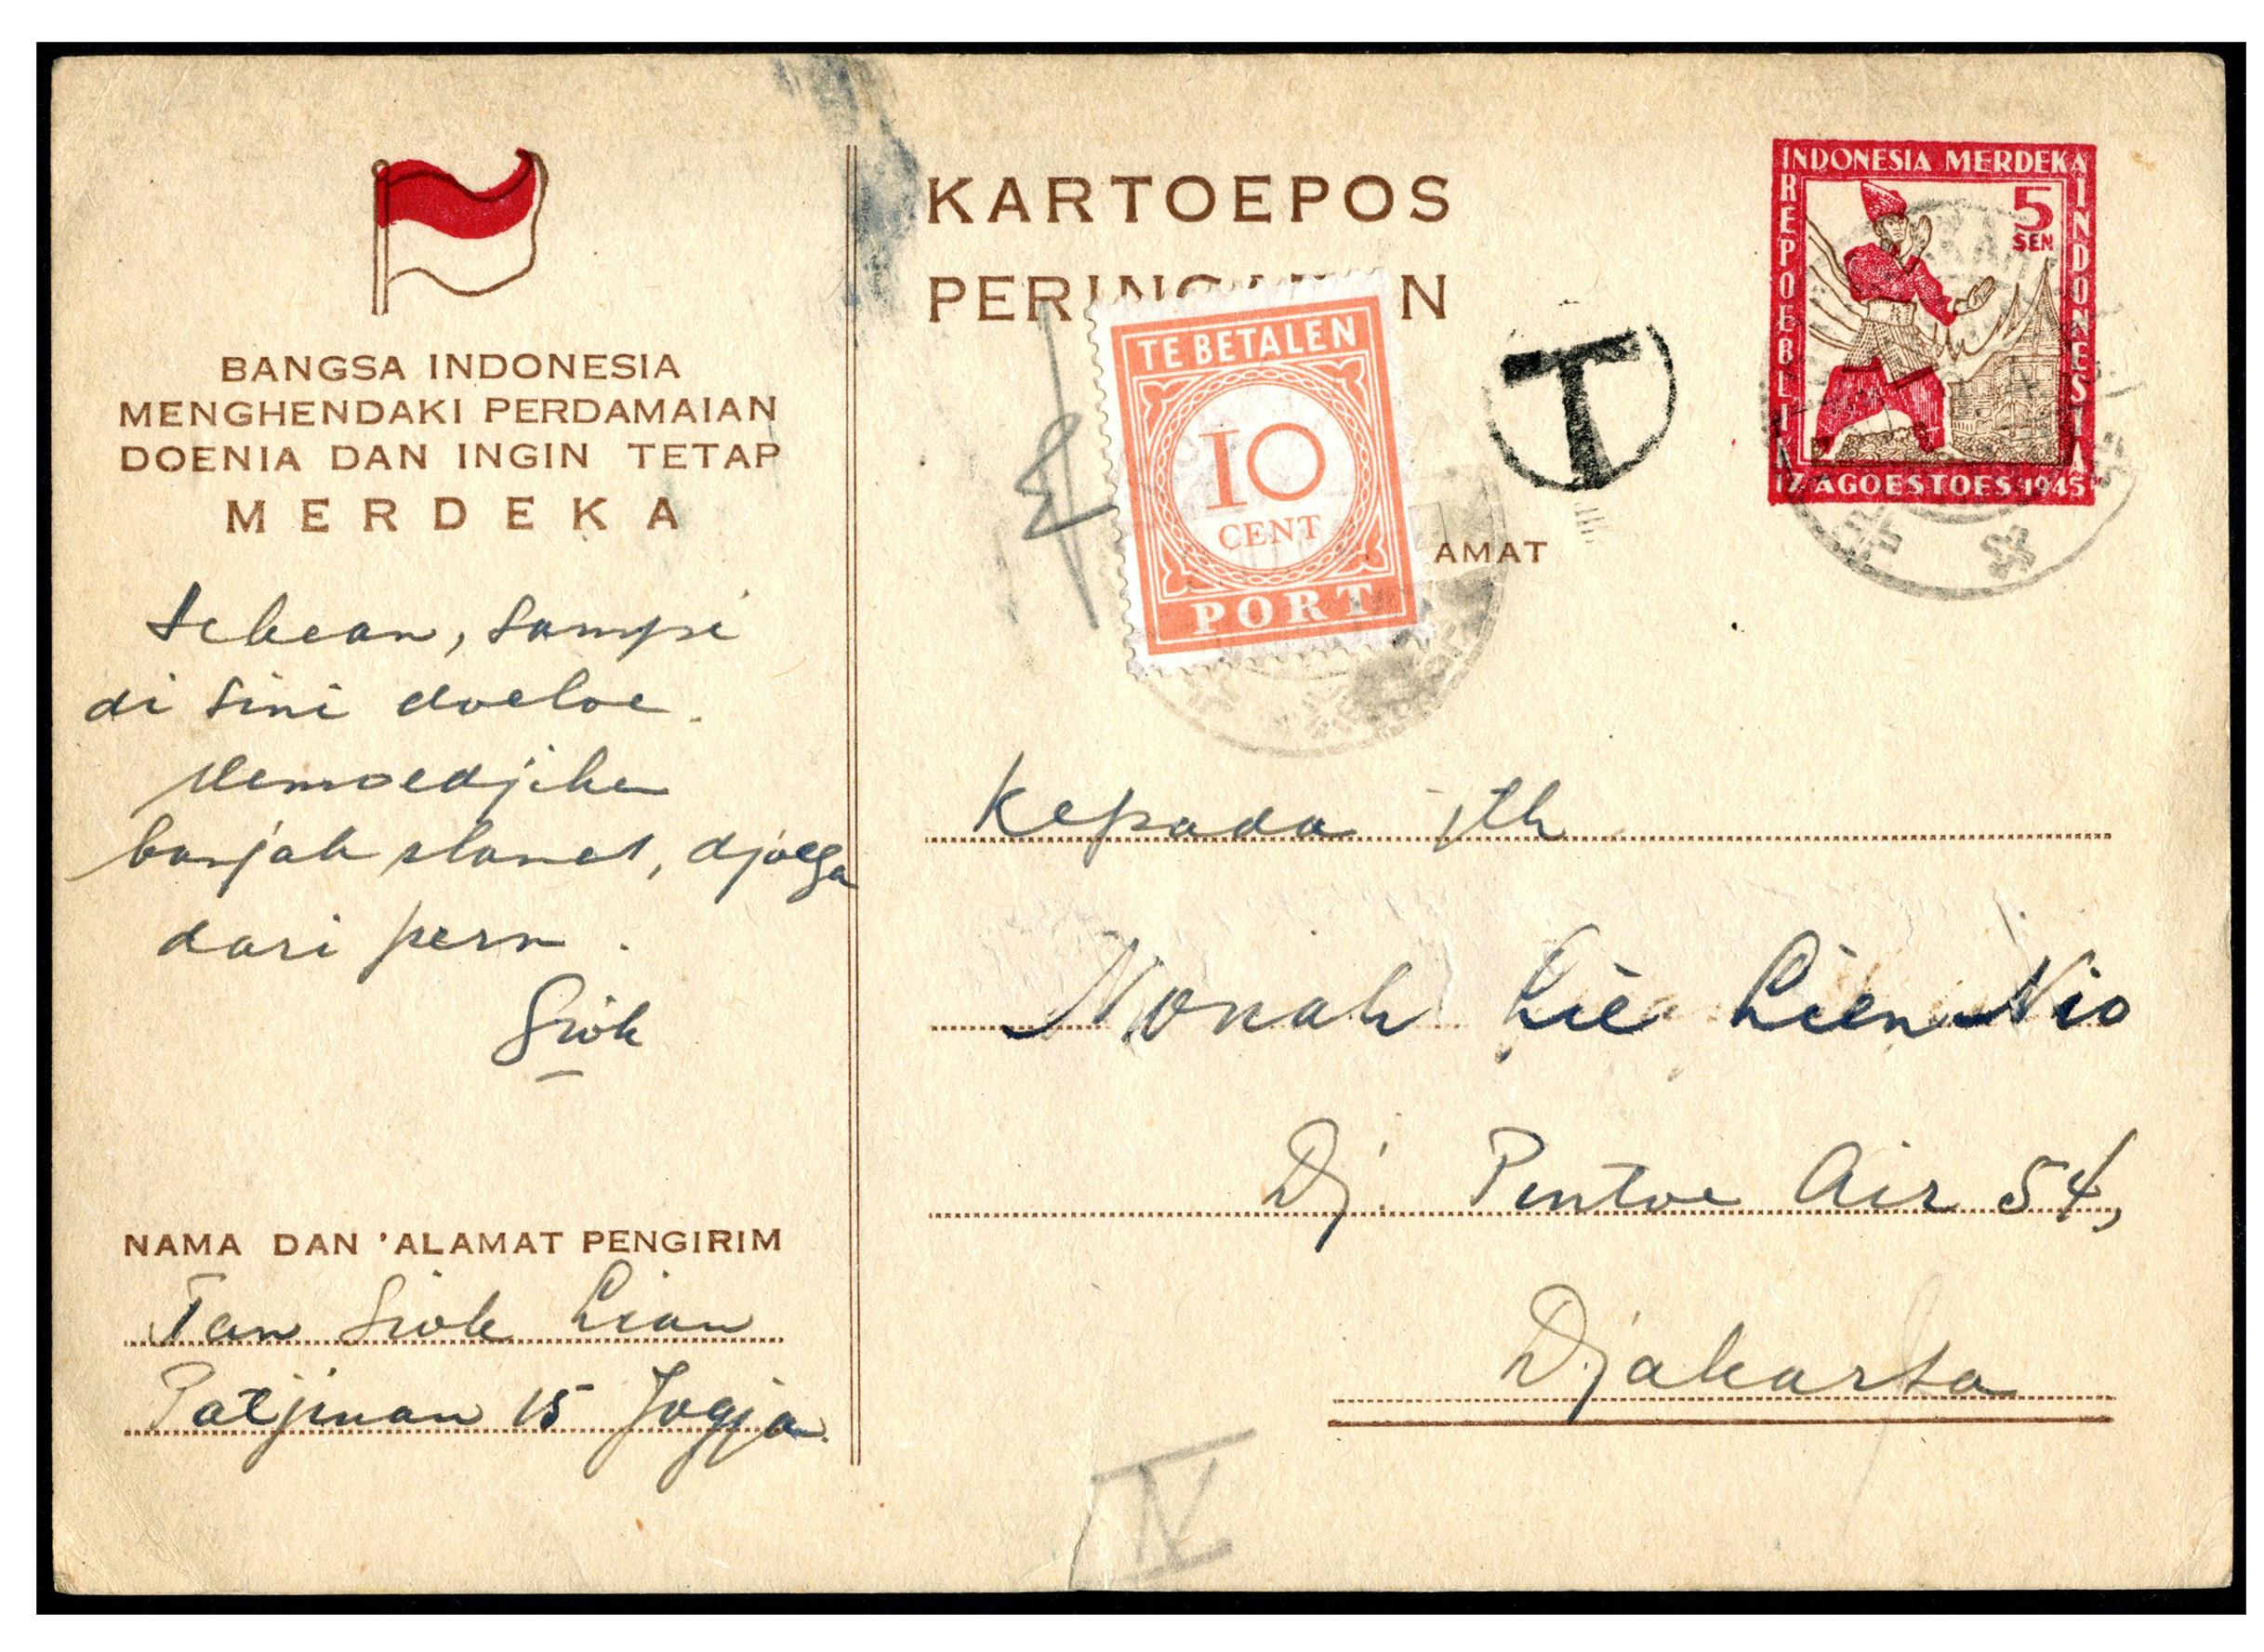 BANGSA INDONESIA
MENGHENDAKI PERDAMAIAN
DOENIA DAN INGIN TETAP
MERDEKA
Sekean, sampi
di sini doeloe.
Memoedjiken
banjak slamet, djoega
dari pern.
Giok
NAMA DAN 'ALAMAT PENGIRIM
Tan Giok Lian
Patjinan 15 Jogja.
KARTOEPOS
PERIN N
TE BETALEN
10
CENT
PORT
T
AMAT
INDONESIA MERDEKA
REPOEBLIK
INDONESIA
5
SEN
17 AGOESTOES 1945
Kepada jth
Nonah Lie Lien Nio
Dj. Pintoe Air 54,
Djakarta
IV